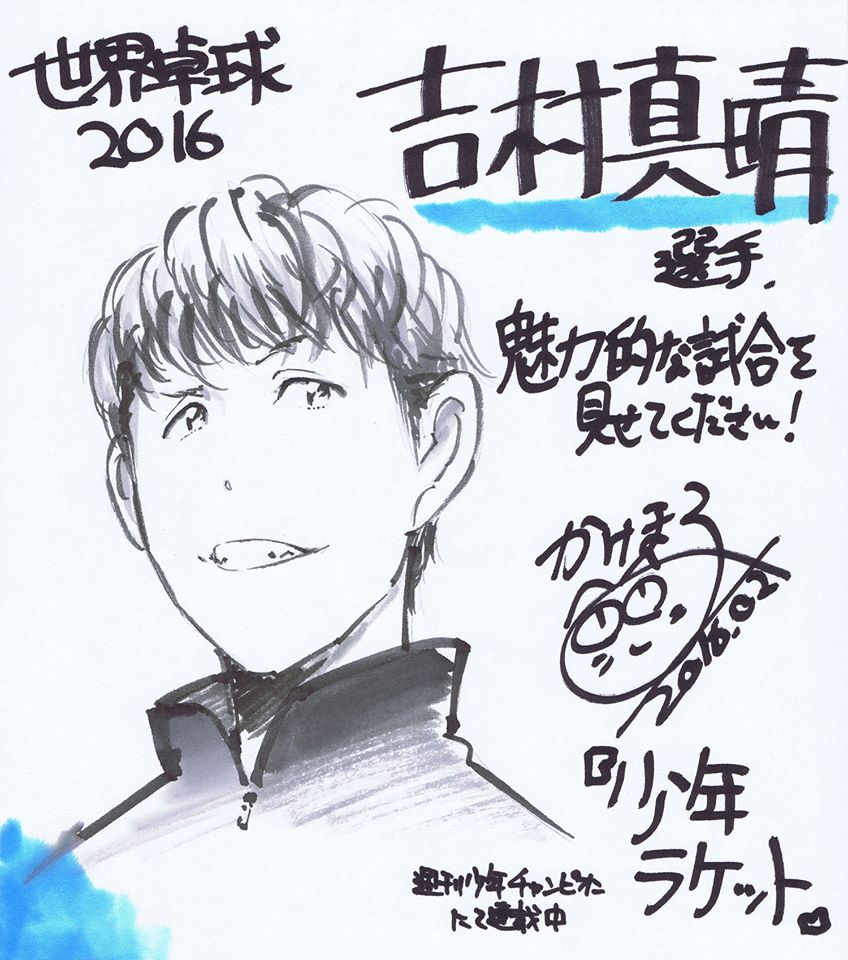 世界卓球
2016
吉村真晴
選手、
魅力的な試合を
見せてください!
かけまろ
2016.02
『少年
ラケット』
週刊少年チャンピオン
にて連載中